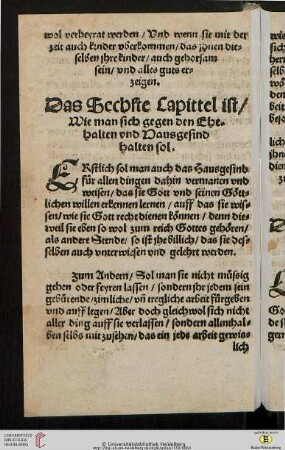 wol verheyrat werden / Vnd wenn sie mit der
zeit auch kinder vberkommen / das jhnen die-
selben ihre kinder / auch gehorsam
sein / vnd alles guts er-
zeigen.
Das Sechste Capittel ist /
Wie man sich gegen den Ehe-
halten vnd Hausgesind
halten sol.
ERstlich sol man auch das Hausgesind
für allen dingen dahin vermanen vnd
weisen / das sie Gott vnd seinen Gött-
lichen willen erkennen lernen / auff das sie wis-
sen / wie sie Gott recht dienen können / denn die-
weil sie eben so wol zum reich Gottes gehören /
als andere Stende / so ist jhe billich / das sie des-
selben auch vnterwisen vnd gelehrt werden.
Zum Andern / Sol man sie nicht müssig
gehen oder feyren lassen / sondern jhr jedem sein
gebürende / zimliche / vñ tregliche arbeit fürgeben
vnd auff legen / Aber doch gleichwol sich nicht
aller ding auff sie verlassen / sondern allenthal-
ben selbs mit zusehen / das ein jede arbeit gewis-
lich
© Universitätsbibliothek Heidelberg